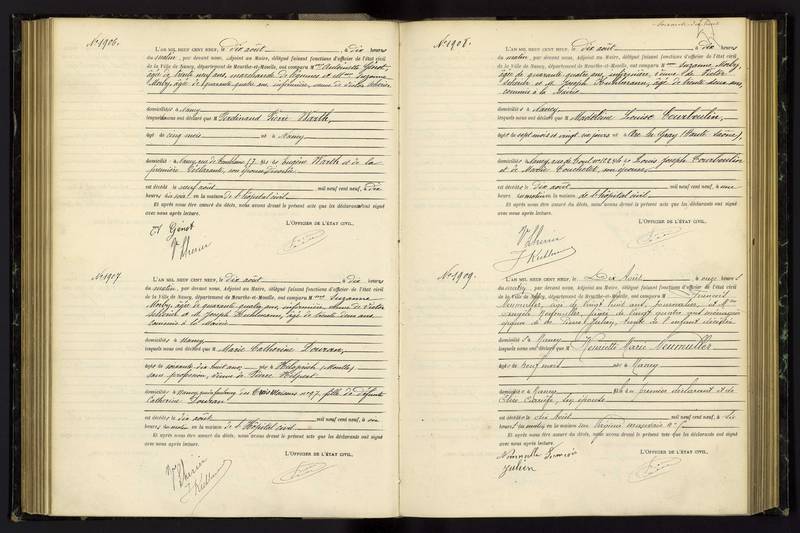 N° 1906.
L'AN MIL NEUF CENT NEUF, le dix août, à dix heures
du matin, par devant nous, Adjoint au Maire, délégué faisant fonctions d'officier de l'état civil
de la Ville de Nancy, département de Meurthe-et-Moselle, ont comparu M me Antoinette Génot,
âgée de trente neuf ans, marchande de légumes et Mme Suzanne
Morby, âgée de quarante quatre ans, infirmière, veuve de Victor
domiciliés à Nancy
lesquels nous ont déclaré que M Ferdinand Pierre Warth
âgé de cinq mois né à Nancy
domicilié à Nancy, rue de 57 fils de Eugène Warth et de la
première déclarante, son épouse divorcée
est décédé le neuf août mil neuf cent neuf, à dix
heures du soir en la maison de l'hôpital civil
Et après nous être assuré du décès, nous avons dressé le présent acte que les déclarants ont signé
avec nous après lecture.
L'OFFICIER DE L'ÉTAT CIVIL,
A Génot
N° 1907
L'AN MIL NEUF CENT NEUF, le dix août, à dix heures
du matin, par devant nous, Adjoint au Maire, délégué faisant fonctions d'officier de l'état civil
de la Ville de Nancy, département de Meurthe-et-Moselle, ont comparu M me Suzanne
Morby, âgée de quarante quatre ans, infirmière, veuve de Victor
et M. Joseph Kuhlmann, âgé de trente deux ans,
commis à la Mairie
domiciliés à Nancy
lesquels nous ont déclaré que M Marie Catherine Douran,
âgée de soixante dix huit ans née à (Moselle)
sans profession, veuve de Pierre
domiciliée à Nancy, faubourg des Trois Maisons n° 97, fille de défunte
Catherine Douran
est décédée le dix août mil neuf cent neuf, à
heures du matin en la maison de l'hôpital civil
Et après nous être assuré du décès, nous avons dressé le présent acte que les déclarants ont signé
avec nous après lecture.
L'OFFICIER DE L'ÉTAT CIVIL,
J Kuhlmann
N° 1908.
L'AN MIL NEUF CENT NEUF, le dix août, à dix heures
du matin, par devant nous, Adjoint au Maire, délégué faisant fonctions d'officier de l'état civil
de la Ville de Nancy, département de Meurthe-et-Moselle, ont comparu M me Suzanne Morby,
âgée de quarante quatre ans, infirmière, veuve de Victor
et M. Joseph Kuhlmann, âgé de trente deux ans,
commis à la Mairie
domiciliés à Nancy
lesquels nous ont déclaré que M Madeleine Louise Courboulin,
âgée de sept mois et vingt six jours née à Arc les Gray (Haute Saône),
domiciliée à Nancy, rue de Toul n° fille de Louis Joseph Courboulin
et de Marie son épouse
est décédée le dix août mil neuf cent neuf, à une
heure du matin en la maison de l'hôpital civil
Et après nous être assuré du décès, nous avons dressé le présent acte que les déclarants ont signé
avec nous après lecture.
L'OFFICIER DE L'ÉTAT CIVIL,
J Kuhlmann
N° 1909.
L'AN MIL NEUF CENT NEUF, le Dix Août, à onze heures
du matin, par devant nous, Adjoint au Maire, délégué faisant fonctions d'officier de l'état civil
de la Ville de Nancy, département de Meurthe-et-Moselle, ont comparu M François
Neumuller, âgé de vingt huit ans, journalier, et Mme
Neumuller, âgée de vingt quatre ans, ménagère
épouse de Pierre Julien, tante de l'enfant décédée
domiciliés à Nancy
lesquels nous ont déclaré que M Henriette Marie Neumuller
âgée de neuf mois née à Nancy
domiciliée à Nancy fille du premier déclarant et de
son épouse
est décédée le dix Août mil neuf cent neuf, à six
heures du matin en la maison
Et après nous être assuré du décès, nous avons dressé le présent acte que les déclarants ont signé
avec nous après lecture.
L'OFFICIER DE L'ÉTAT CIVIL,
François
Julien